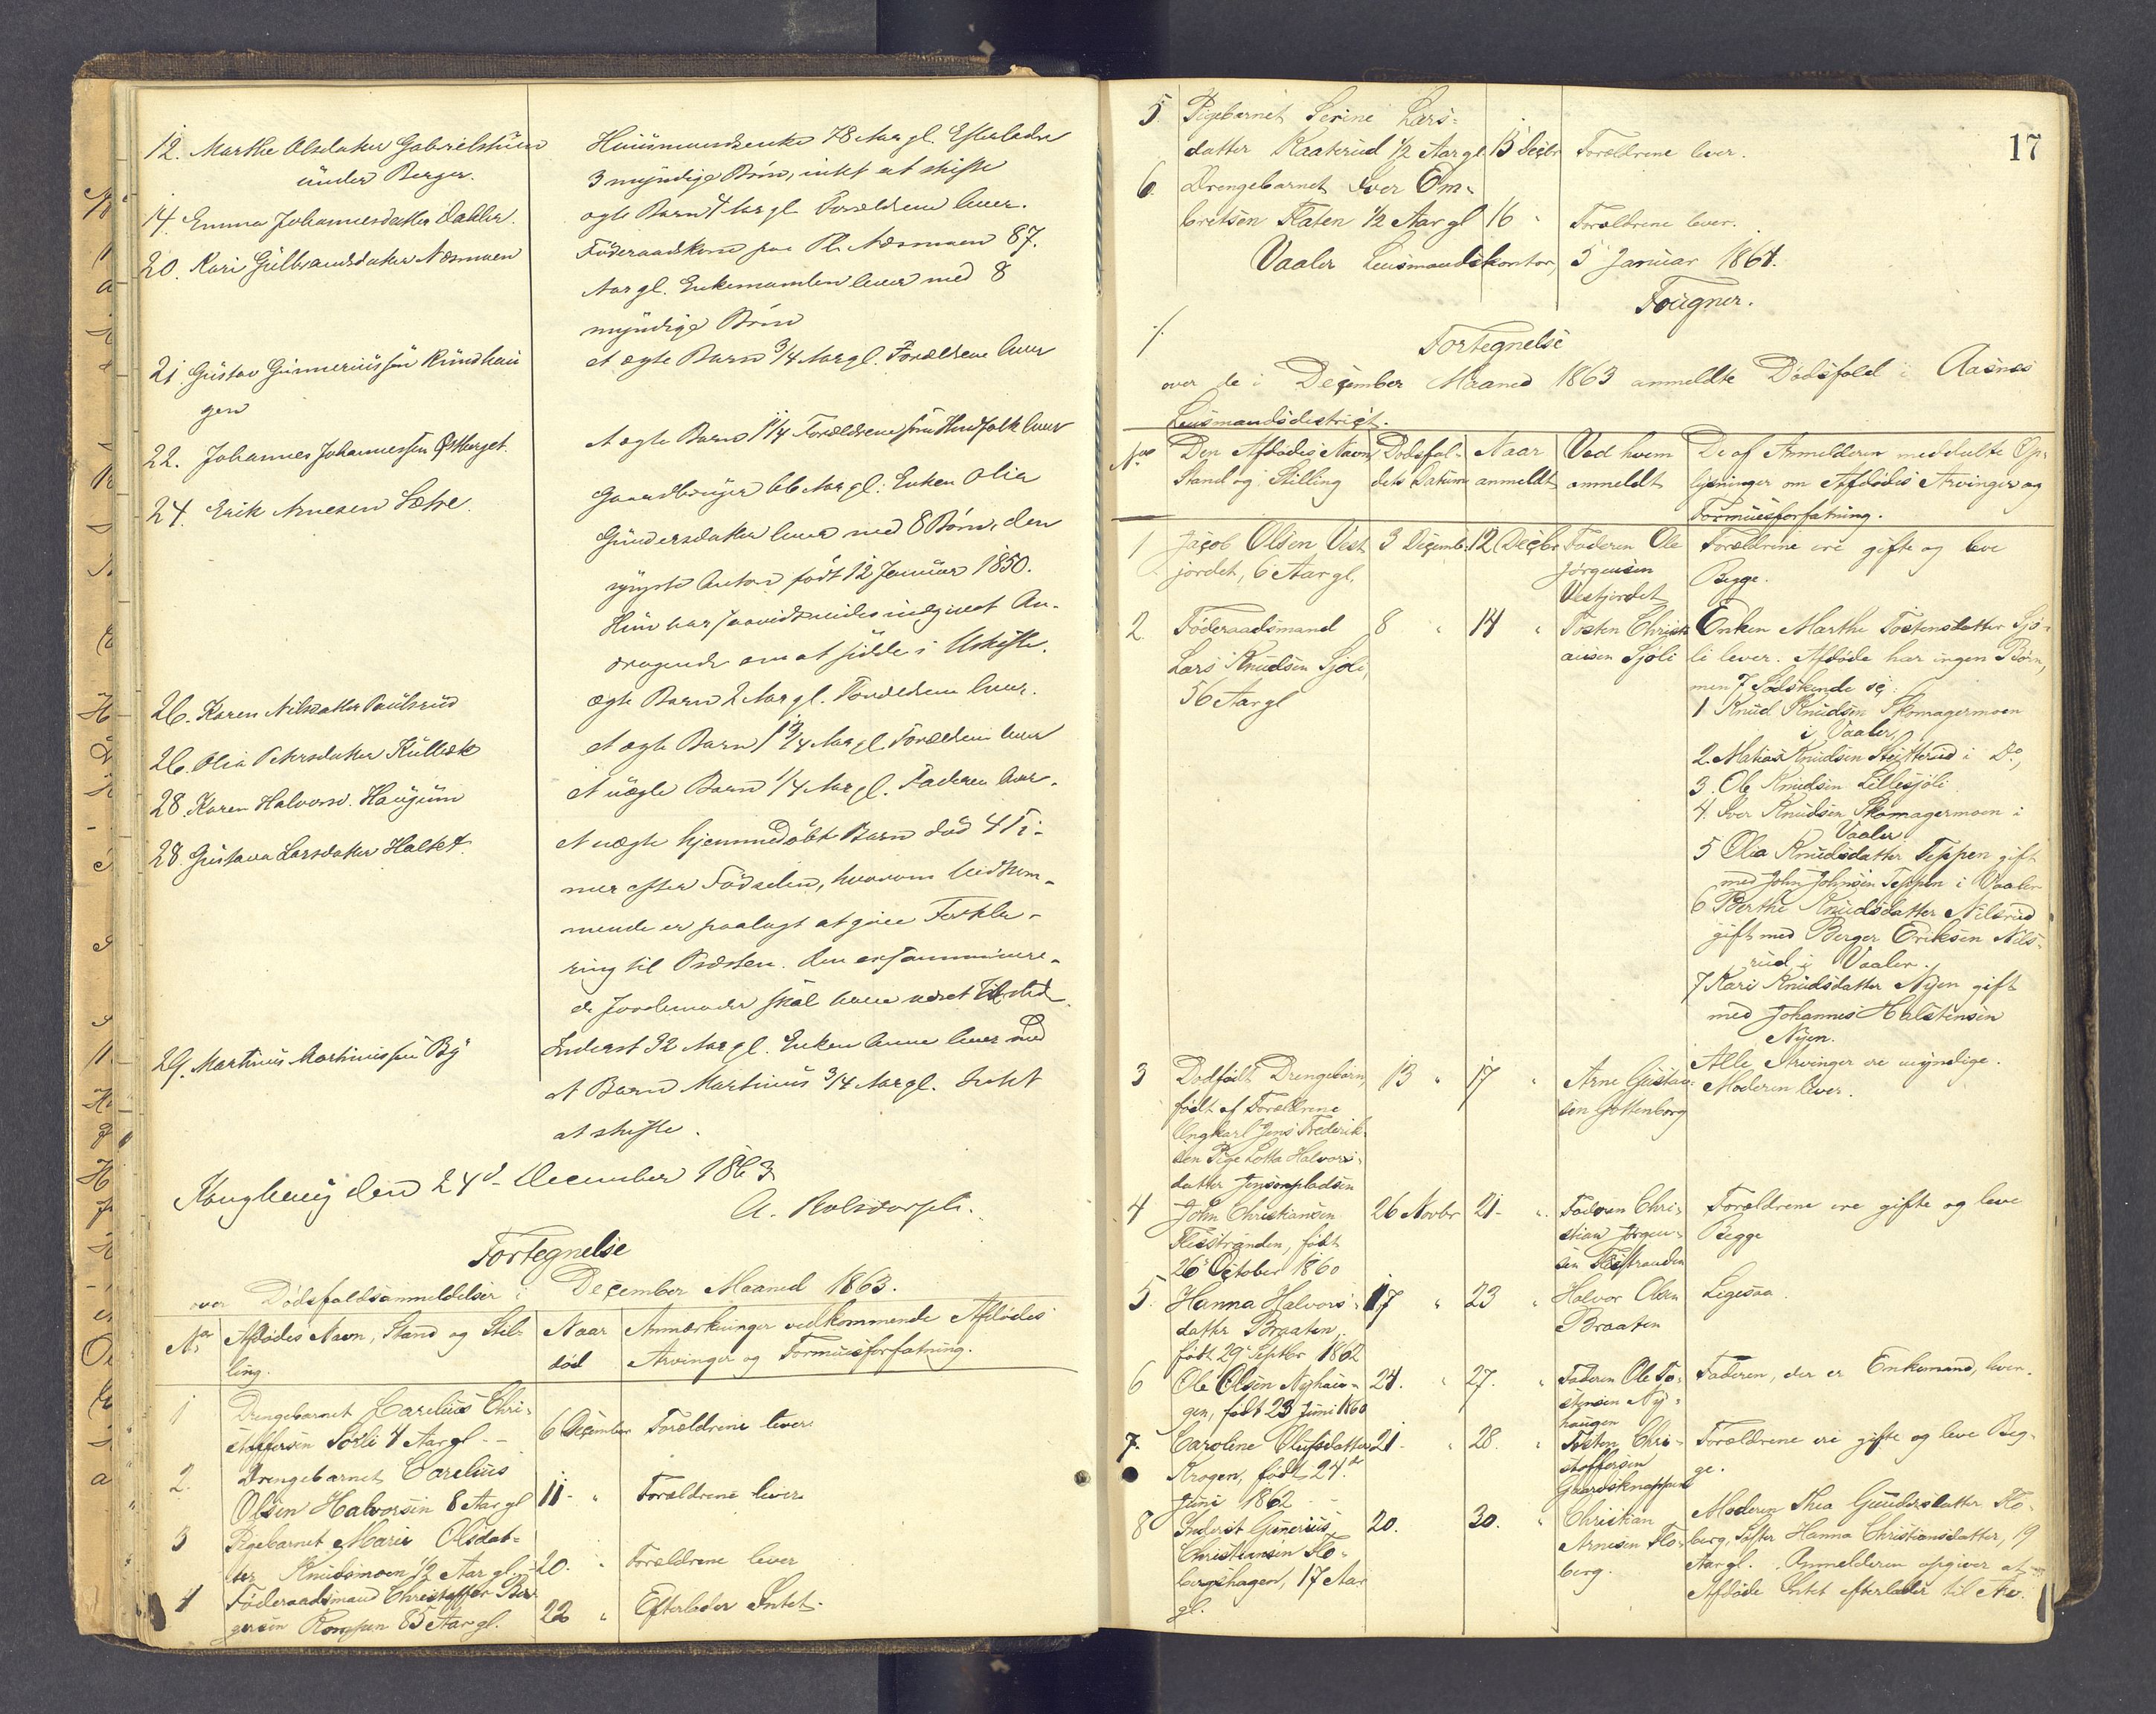 12. Marthe Olsdatter Gabrielstuen
under Berger.
Huusmandsenke 78 Aar gl. Efterlader
3 myndige Børn, intet at skifte
14. Emma Johannesdatter Dahler.
ægte Barn 4 Aar gl. Forældrene lever.
20. Kari Gulbrandsdatter Næsmoen
Föderaadkone paa Pl. Næsmoen 87.
Aar gl. Enkemanden lever med 8
myndige Börn
21. Gustav Gunneriussen Rundhau
gen
et ægte Barn 3/4 Aar gl. Forældrene lever
22. Johannes Johannessen Østberget.
et ægte Barn 1 1/4 Forældrene lever
24. Erik Arnesen Sætre.
Gaardbruger 66 Aar gl. Enken Olia
Gundersdatter lever med 8 Börn, den
yngste Anton født 12 Januar 1850.
Hun har saavidt vides indgivet An-
dragende om at sidde i Uskifte.
26. Karen Nilsdatter Paulsrud
ægte Barn 2 Aar gl. Forældrene lever.
26. Olia Pedersdatter Kulbæk
et ægte Barn 1 3/4 Aar gl. Forældrene lever
28. Karen Halvorsd. Haugum
et uægte Barn 1/4 Aar gl. Faderen lever.
28. Gustava Larsdatter Haltet.
et uægte hjemmedöbt Barn död 4 Ti-
mer efter Födselen, hvorom Vedkom-
mende er paalagt at give Forkla-
ring til Præsten. Den
Jordemoder skal have været tilstede.
29. Martinus Martinussen By
Inderst 32 Aar gl. Enken Anne lever med
et Barn Martinus 3/4 Aar gl. Intet
at skifte.
Konghaug den 24d December 1863
A. Rolsdorph.
Fortegnelse
over Dødsfaldsanmeldelser i December Maaned 1863.
No Afdødes Navn, Stand og Stil-
ling.
Naar
død
Anmærkninger vedkommende Afdødes
Arvinger og Formuesforfatning.
1 Drengebarnet Carelius Chri-
stoffersen Sørli 4 Aar gl. - 6 December Forældrene lever
2. Drengebarnet Carelius
Olsen Halvorsen 8 Aar gl 11 - " Forældrene lever
3 Pigebarnet Marie Olsdat-
ter Knudsmoen 1/2 Aar gl. 20. " Forældrene lever
4 Føderaadsmand Christoffer Bør
gersen Rompen 85 Aar gl. 22 " Efterlader Intet.
17
5. Pigebarnet Serine Lars-
datter Kaaterud 1/2 Aar gl 15 Decbr Forældrene lever.
6. Drengebarnet Iver Em-
bretsen Flaten 1/2 Aar gl 16 " Forældrene lever.
Vaaler Lensmandskontor, 5 Januar 1864.
Fougner.
Fortegnelse
over de i December Maaned 1863 anmeldte Dødsfald i Aasnæs
Lensmandsdistrict.
No Den Afdødes Navn, Stand og Stilling
Dødsfal-
dets Datum
Naar
anmeldt
Ved hvem
anmeldt
De af Anmelderen meddeelte Op-
lysninger om Afdødes Arvinger og
Formuesforfatning.
1 Jacob Olsen Vest
jordet, 6 Aar gl.
3 Decemb. 12 Decbr
Faderen Ole
Jørgensen
Vestjordet
Forældrene ere gifte og leve
Begge.
2. Føderaadsmand
Lars Knudsen Sjøli,
56 Aar gl
8 " 14 "
Tosten Christi
ansen Sjøli
Enken Marthe Tostensdatter Sjø-
li lever. Afdøde har ingen Børn,
men 7 Sødskende sc:
1 Knud Knudsen Skomagermoen
i Vaaler,
2. Mathias Knudsen Steitterud i Do,
3. Ole Knudsen Lillesjøli
4. Iver Knudsen Skomagermoen i
Vaaler
5 Olia Knudsdatter Teppen gift
med John Johnsen Teppen i Vaaler
6 Berthe Knudsdatter Nilsrud
gift med Berger Eriksen Nils-
rud i Vaaler.
7 Kari Knudsdatter Nyen gift
med Johannes Halstensen
Nyen.
Alle Arvinger ere myndige.
3 Dødfødt Drengebarn,
født af Forældrene
Ungkarl Jens Frederik-
sen Pige Lotta Halvors-
datter Jensenpladsen
13 " 17 "
Arne Gustav-
sen Gottenborg
Moderen lever.
4 John Christiansen
Flisstranden, født
26 October 1860
26 Novbr 21 - "
Faderen Chri-
stian Jørgen-
sen Flisstranden
Forældrene ere gifte og leve
Begge
5. Hanna Halvors-
datter Braaten,
født 29 Septbr 1862
17 " 23 "
Halvor Olsen
Braaten
Ligesaa.
6 Ole Olsen Nyhau-
gen, født 23 Juni 1860
24. " 27. "
Faderen Ole To-
stensen Ny-
haugen
Faderen, der er Enkemand, lever.
7. Caroline Olufsdatter
Krogen, født 24de
Juni 1862
21 - " 28. "
Tosten Chri-
stoffersen
Gaardsknappen
Forældrene ere gifte og leve Beg-
ge.
8 Inderst Gunerius
Christiansen Flo-
berghagen, 17 Aar
gl.
20. 30. "
Christian
Arnesen Flo-
berg.
Moderen Thea Gundersdatter Flo-
berg, Søster Hanna Christiansdatter, 19
Aar gl. Anmelderen opgiver at
Afdøde Intet efterlader til Arv.